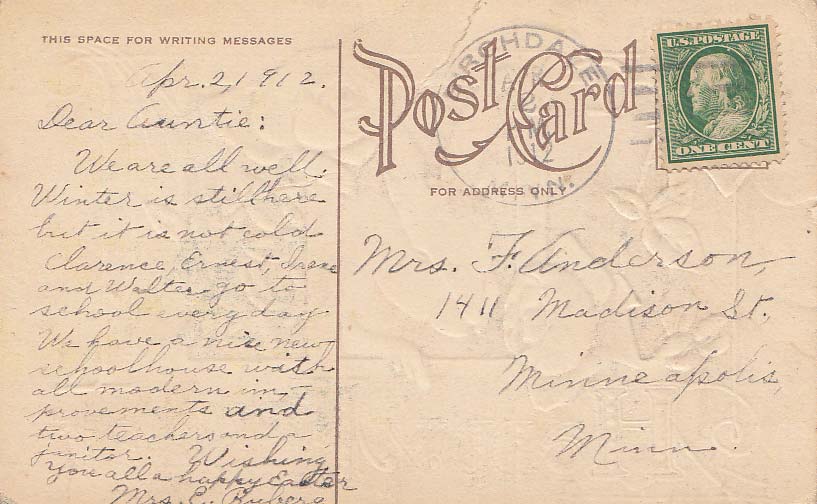 THIS SPACE FOR WRITING MESSAGES
Apr. 2, 1912.
Dear Auntie:
We are all well.
Winter is still here
but it is not cold
Clarence, Ernest, Irene
and Walter go to
school every day
We have a nice new
schoolhouse with
all modern im-
provements and
two teachers and a
janitor. Wishing
You all a happy Easter
Mrs. E.
Post Card
FOR ADDRESS ONLY.
MINN.
U.S. POSTAGE
ONE CENT
Mrs. F. Anderson,
1411 Madison St.,
Minneapolis,
Minn.